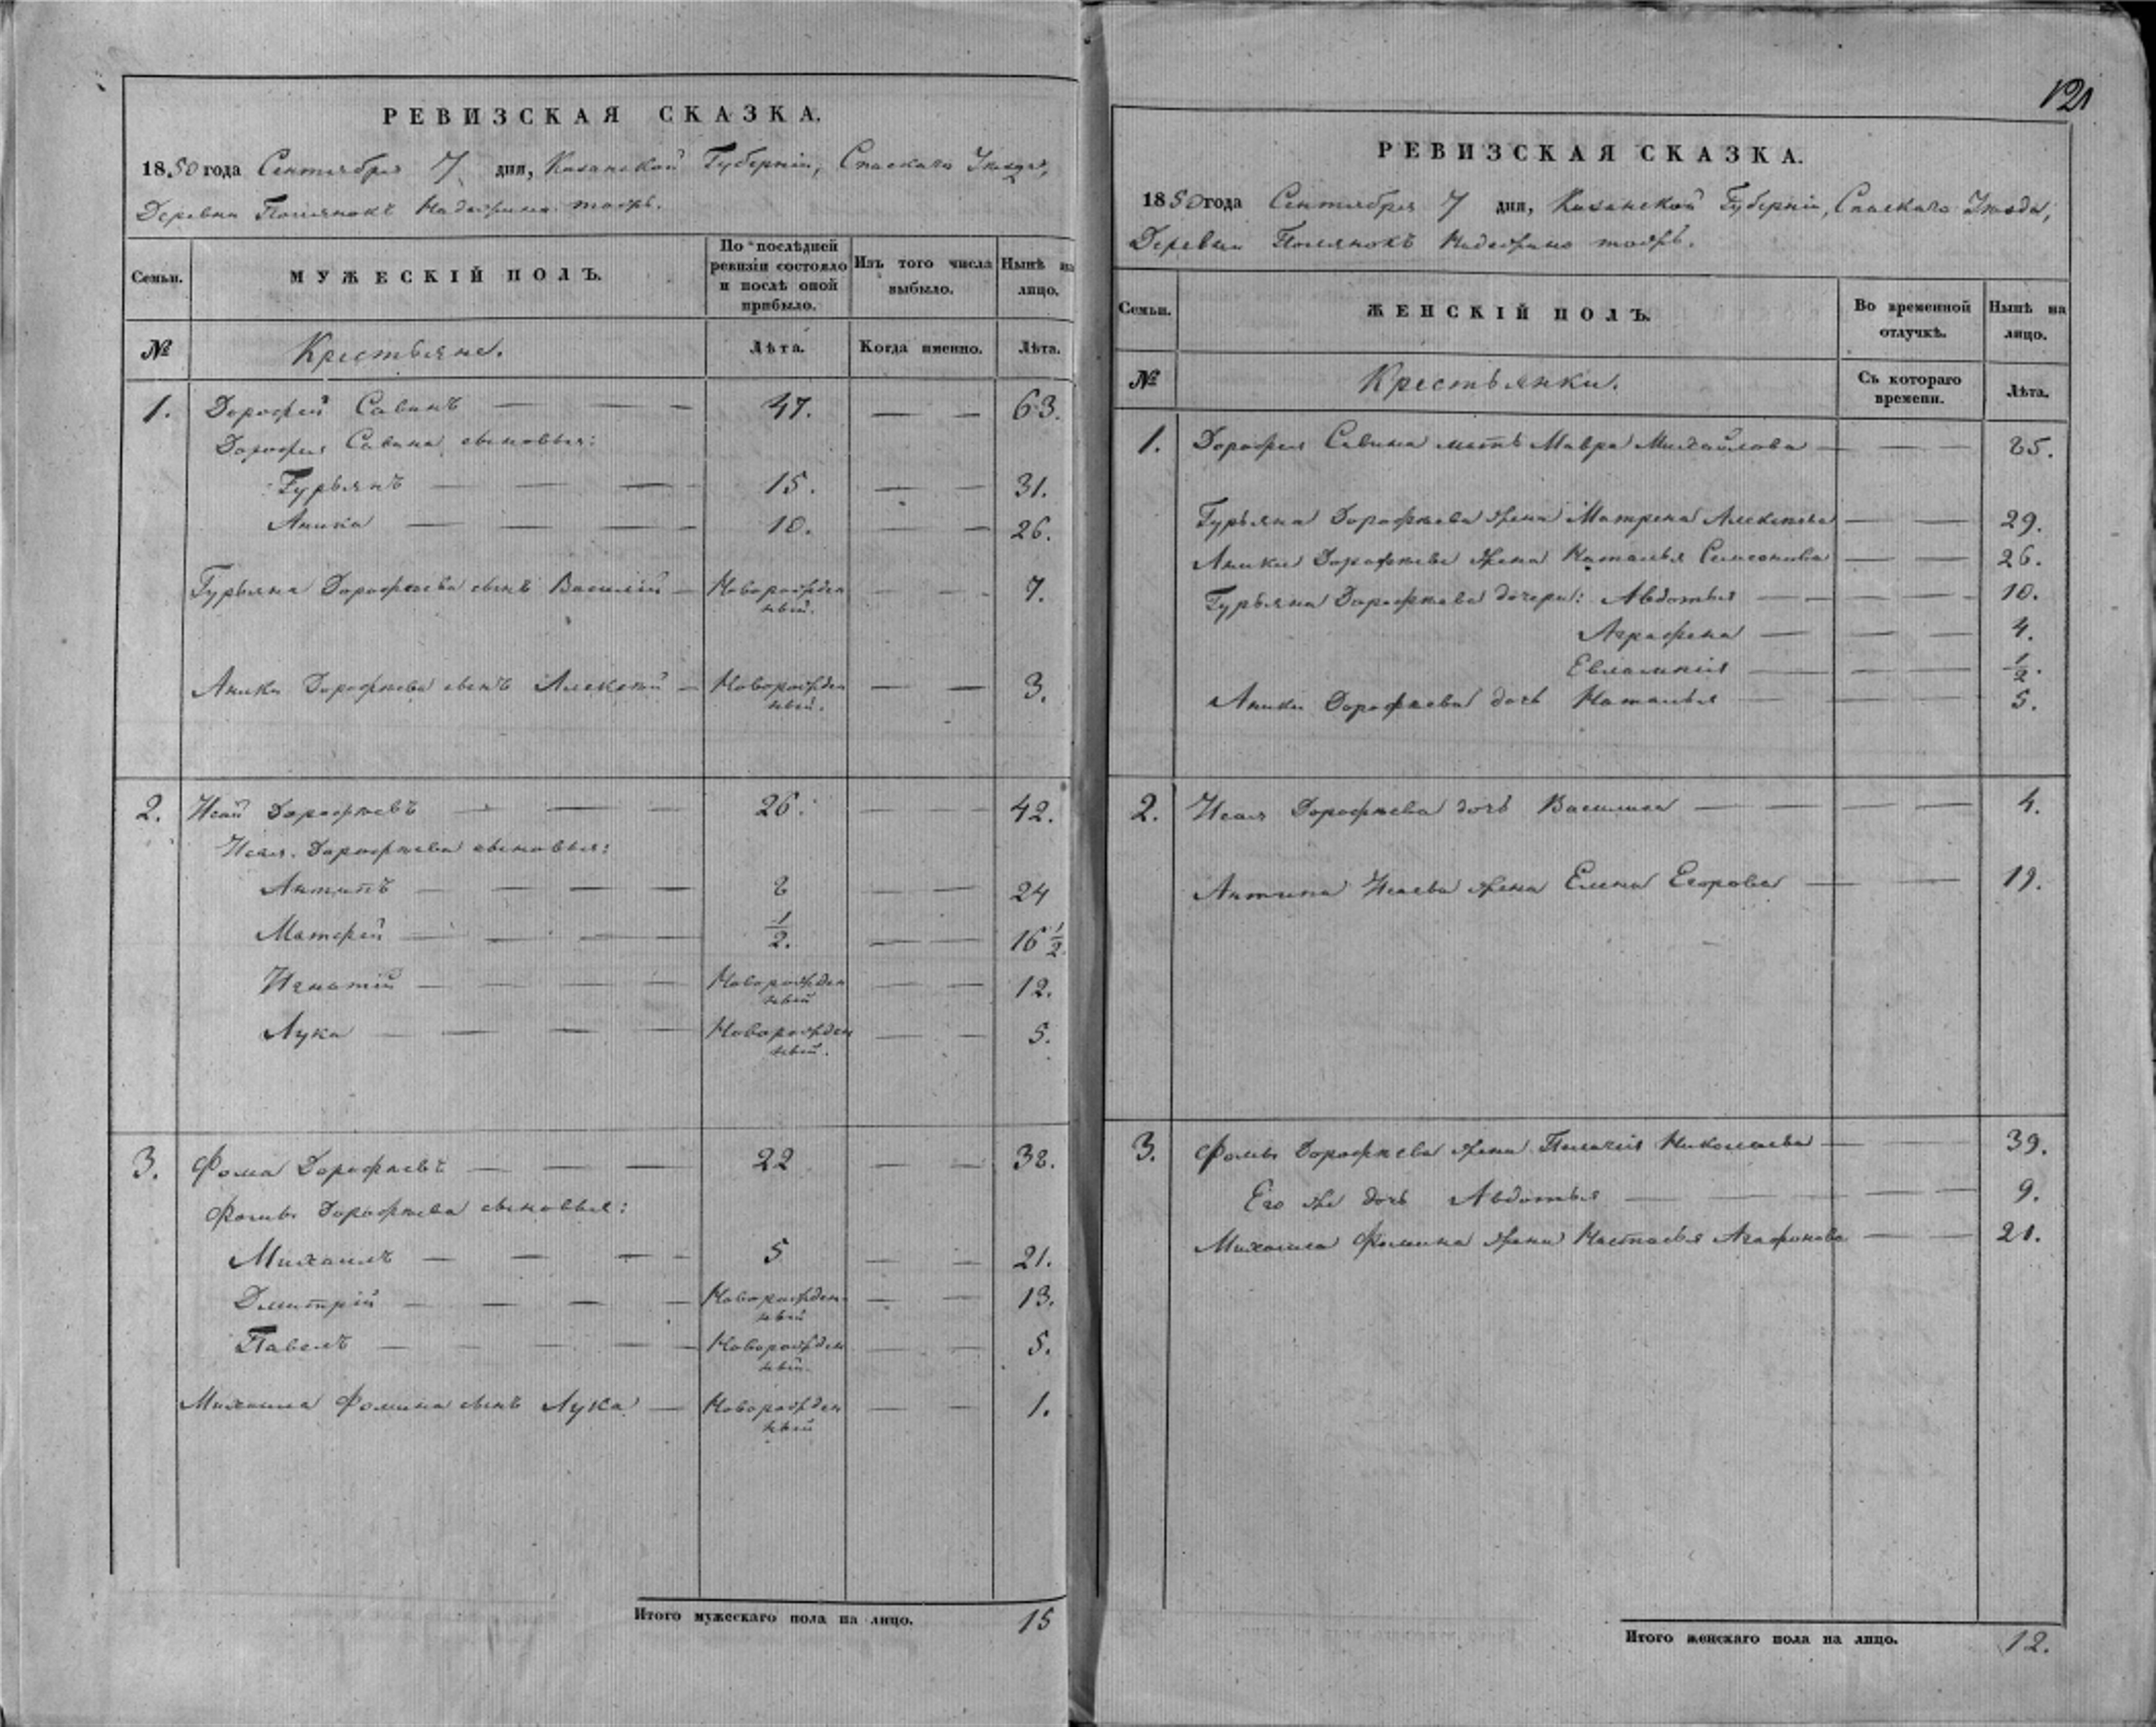 РЕВИЗСКАЯ СКАЗКА.
1850 года Сентября 7 дня, Казанской Губерніи, Спаскаго Уѣзда,
Деревни Полянокъ тожъ.
Семьи.
МУЖЕСКІЙ ПОЛЪ.
По послѣдней ревизіи состояло и послѣ оной прибыло.
Изъ того числа выбыло.
Нынѣ на лицо.
№
Крестьяне.
Лѣта.
Когда именно.
Лѣта.
1. Дорофей Савинъ — — — 47. — — 63.
Дорофея Савина сыновья:
Гурьянъ — — — 15. — — 31.
Аника — — — 10. — — 26.
Гурьяна Дорофѣева сынъ Василій — Новорожденный. — — 7.
Аники Дорофѣева сынъ Алексѣй — Новорожденный. — — 3.
2. Исай Дорофѣевъ — — — 26. — — 42.
Исая Дорофѣева сыновья:
Антипъ — — — — 8 — — 24
Матфей — — — — 1/2. — — 16 1/2.
Игнатій — — — — Новорожденный — — 12.
Лука — — — — Новорожденный. — — 5.
3. Фома Дорофѣевъ — — — 22 — — 38.
Фомы Дорофѣева сыновья:
Михаилъ — — — — 5 — — 21.
Дмитрій — — — — Новорожденный — — 13.
Павелъ — — — — Новорожденный. — — 5.
Михаила Фомина сынъ Лука — Новорожденный — — 1.
Итого мужескаго пола на лицо. 15
121
РЕВИЗСКАЯ СКАЗКА.
1850 года Сентября 7 дня, Казанской Губерніи, Спаскаго Уѣзда,
Деревни Полянокъ тожъ.
Семьи.
ЖЕНСКІЙ ПОЛЪ.
Во временной отлучкѣ.
Нынѣ на лицо.
№
Крестьянки.
Съ котораго времени.
Лѣта.
1. Дорофея Савина мать Мавра Михайлова — — — 85.
Гурьяна Дорофѣева жена Матрена Алексѣева — — 29.
Аники Дорофѣева жена Наталья Семенова — — 26.
Гурьяна Дорофѣева дочери: Авдотья — — — 10.
Аграфена — — — 4.
Евлампія — — — 1/2.
Аники Дорофѣева дочь Наталья — — — 5.
2. Исая Дорофѣева дочь Василиса — — — — 4.
Антипа Исаева жена Елена Егорова — — 19.
3. Фомы Дорофѣева жена Пелагія Николаева — — 39.
Его же дочь Авдотья — — — — 9.
Михаила Фомина жена Настасья Агафонова — — 21.
Итого женскаго пола на лицо. 12.